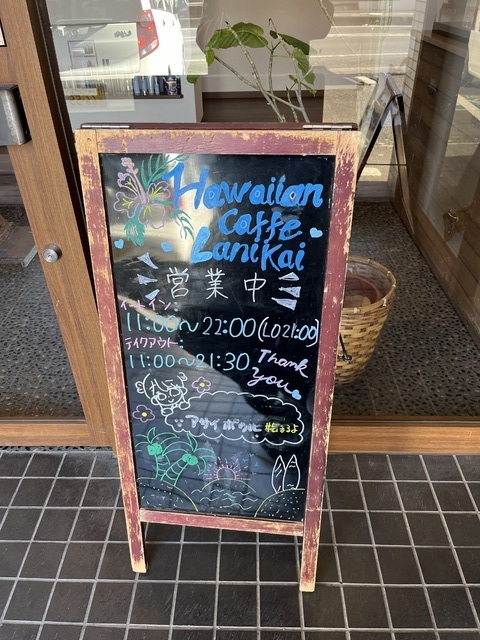 Hawaiian
Caffe
Lanikai
営業中
イートイン:
11:00〜22:00(LO21:00)
テイクアウト:
11:00〜21:30
Thank
you
アサイボウル